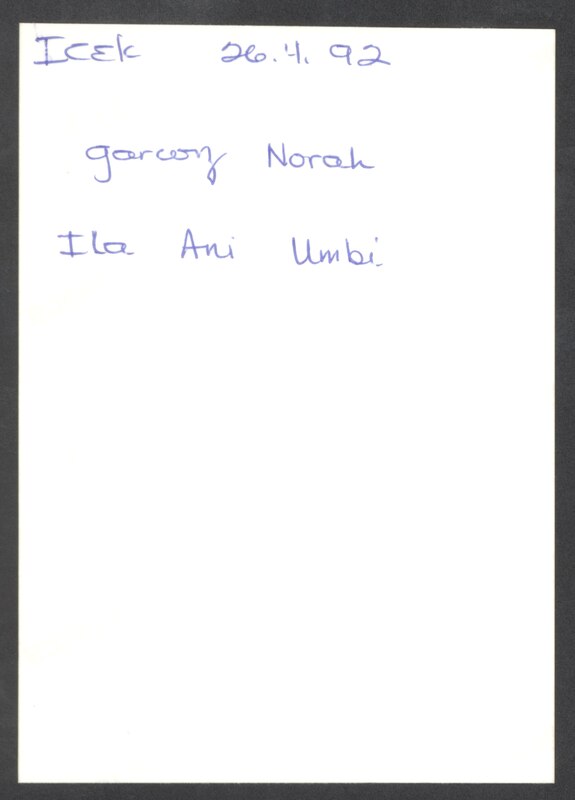 Icek 26.4.92
Norah
Ila Ani Umbi